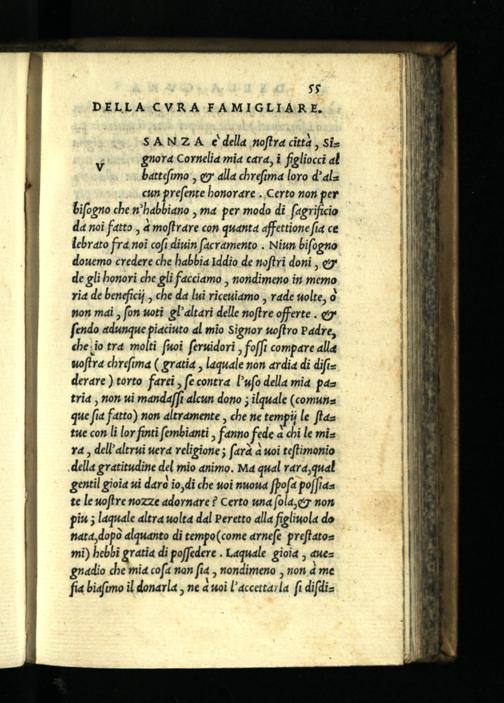 55
DELLA CVRA FAMIGLIARE.
V SANZA è della nostra città, Si=
gnora Cornelia mia cara, i figliocci al
battesimo, & alla chresima loro d'al=
cun presente honorare. Certo non per
bisogno che n'habbiano, ma per modo di sagrificio
da noi fatto, à mostrare con quanta affettione sia ce
lebrato fra noi cosi diuin sacramento. Niun bisogno
douemo credere che habbia Iddio de nostri doni, &
de gli honori che gli facciamo, nondimeno in memo
ria de beneficij, che da lui riceuiamo, rade uolte, ò
non mai, son uoti gl'altari delle nostre offerte. &
sendo adunque piaciuto al mio Signor uostro Padre,
che io tra molti suoi seruidori, fossi compare alla
uostra chresima (gratia, laquale non ardia di disi=
derare) torto farei, se contra l'uso della mia pa=
tria, non ui mandassi alcun dono; ilquale (comun=
que sia fatto) non altramente, che ne tempij le sta=
tue con li lor finti sembianti, fanno fede à chi le mi=
ra, dell'altrui uera religione; sarà à uoi testimonio
della gratitudine del mio animo. Ma qual rara, qual
gentil gioia ui darò io, di che uoi nuoua sposa possia=
te le uostre nozze adornare? Certo una sola, & non
piu; laquale altra uolta dal Peretto alla figliuola do
nata, dopò alquanto di tempo (come arnese prestato=
mi) hebbi gratia di possedere. Laquale gioia, aue=
gnadio che mia cosa non sia, nondimeno, non à me
fia biasimo il donarla, ne à uoi l'accettarla si disdi=